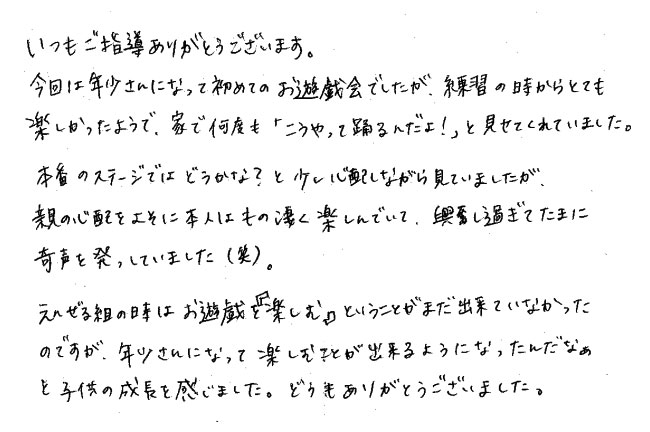 いつもご指導ありがとうございます。
今回は年少さんになって初めてのお遊戯会でしたが、練習の時からとても
楽しかったようで、家で何度も「こうやって踊るんだよ!」と見せてくれていました。
本番のステージではどうかな?と少し心配しながら見ていましたが、
親の心配をよそに本人はもの凄く楽しんでいて、興奮し過ぎてたまに
奇声を発っしていました(笑)。
えんぜる組の時はお遊戯を『楽しむ』ということがまだ出来ていなかった
のですが、年少さんになって楽しむことが出来るようになったんだなぁ
と子供の成長を感じました。どうもありがとうございました。